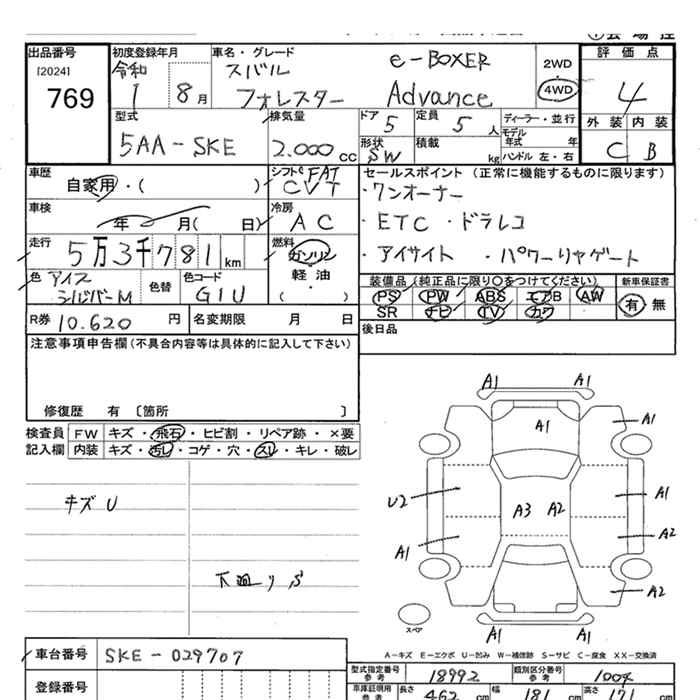 出品番号 初度登録年月 車名・グレード e-BOXER 2WD 評価点
[2024] 令和 スバル 4WD 4
769 1 8月 フォレスター Advance
型式 排気量 ドア 5 定員 5人 ディーラー・並行 外装 内装
5AA-SKE 2.000cc 形状 SW 積載 kg モデル年式 年 C B
ハンドル 左・右
車歴 自家用・( ) シフト FAT CVT セールスポイント(正常に機能するものに限ります)
・ワンオーナー
車検 年 月( 日) 冷房 AC ・ETC ・ドラレコ
走行 5万3千781km 燃料 ガソリン ・アイサイト ・パワーリヤゲート
軽・油
( )
色 アイスシルバーM 色替 色コード G1U 装備品(純正品に限り○をつけてください) 新車保証書
PS PW ABS エアB AW 有 無
SR ナビ TV カワ
R券 10.620円 名変期限 月 日 後日品
注意事項申告欄(不具合内容等は具体的に記入して下さい)
修復歴 有 〔箇所 〕
検査員記入欄 FW キズ・飛石・ヒビ割・リペア跡・×要
内装 キズ・汚レ・コゲ・穴・スレ・キレ・破レ
キズ U
下廻り S
A1 A1
A1 A1
U2 A3 A2 A1
A1 A2
A2
A1 A1
スペア
A-キズ E-エクボ U-凹み W-補修跡 S-サビ C-腐食 XX-交換済
車台番号 SKE-029707
型式指定番号 参考 18992 類別区分番号 参考 1004
登録番号 車庫証明用 参考 長さ 462cm 幅 181cm 高さ 171cm